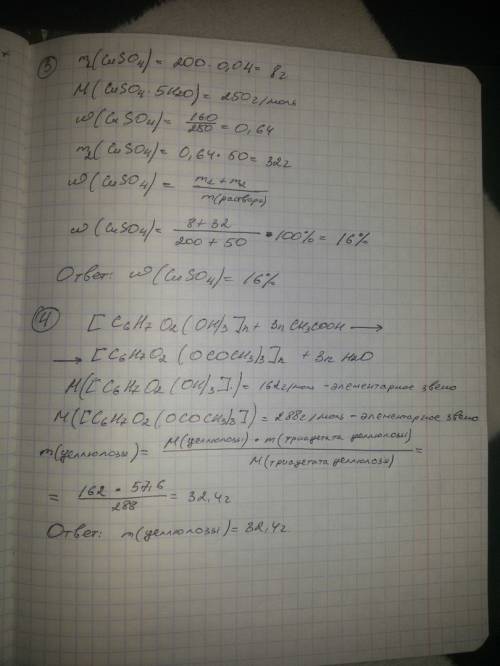 ③ m₁(CuSO₄) = 200 · 0,04 = 8г
M(CuSO₄·5H₂O) = 250г/моль
ω(CuSO₄) = 160/250 = 0,64
m₂(CuSO₄) = 0,64 · 50 = 32г
ω(CuSO₄) = m₁ + m₂ / m(раствора)
ω(CuSO₄) = 8 + 32 / 200 + 50 · 100% = 16%
Ответ: ω(CuSO₄) = 16%
④ [C₆H₇O₂(OH)₃]n + 3n CH₃COOH ⟶
⟶ [C₆H₇O₂(OCOCH₃)₃]n + 3n H₂O
M([C₆H₇O₂(OH)₃]) = 162г/моль - элементарное звено
M([C₆H₇O₂(OCOCH₃)₃]) = 288г/моль - элементарное звено
m(целлюлозы) = M(целлюлозы) · m(триацетата целлюлозы) / M(триацетата целлюлозы) =
= 162 · 57,6 / 288 = 32,4г
Ответ: m(целлюлозы) = 32,4г